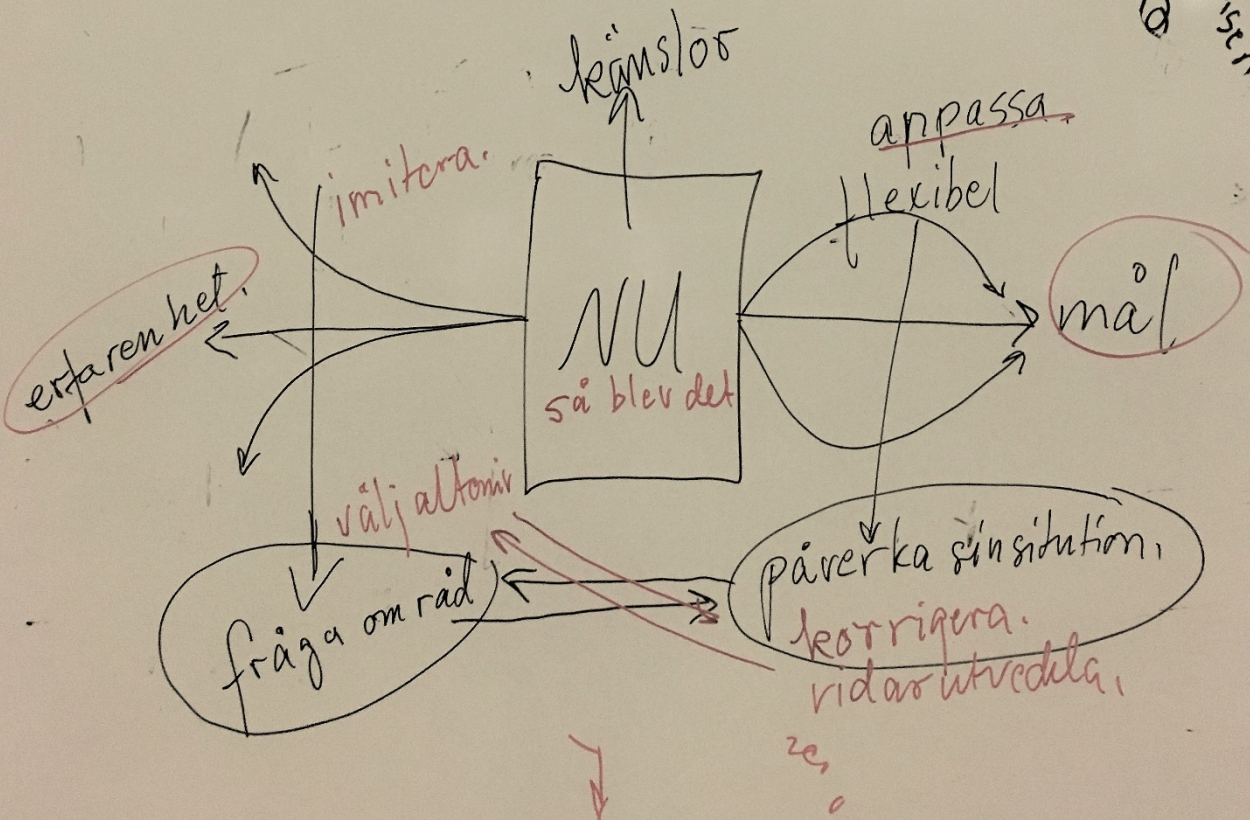 känslor
anpassa.
flexibel
imitera.
erfarenhet.
NU
så blev det
mål
välj
fråga om råd
påverka sin sitution.
korrigera.
vidarutvedkla.